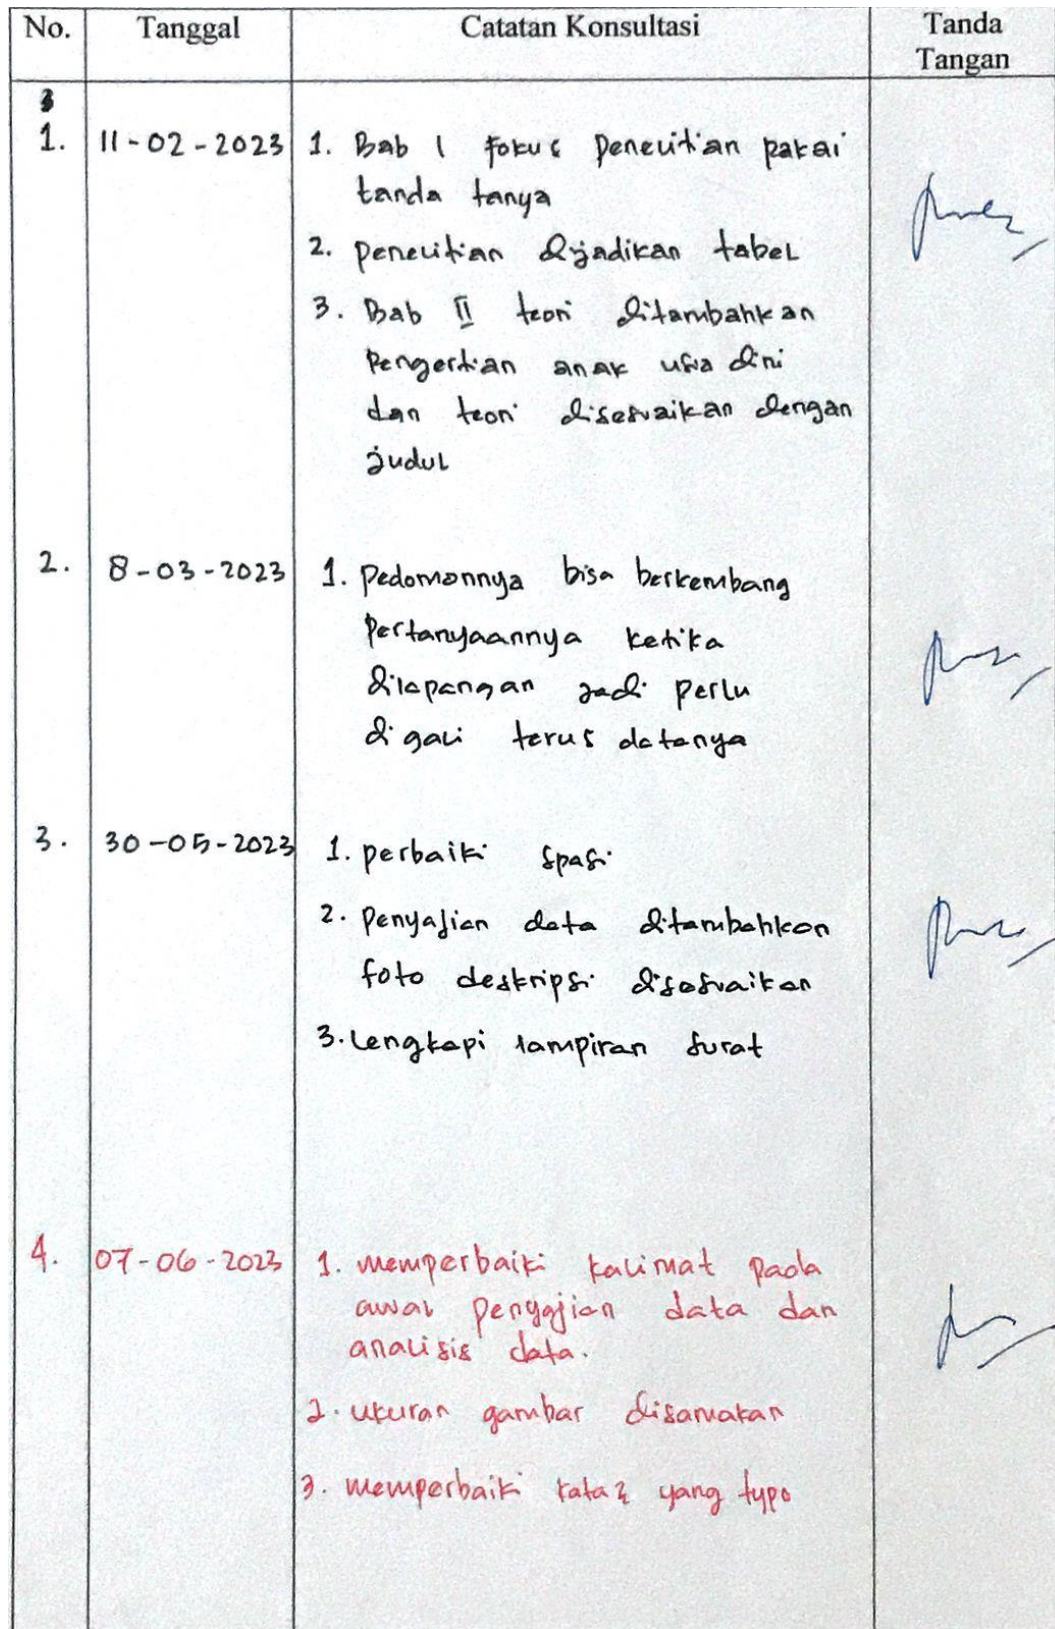 No. Tanggal Catatan Konsultasi Tanda
Tangan
1. 11-02-2023 1. Bab I fokus penelitian pakai
tanda tanya
2. penelitian dijadikan tabel
3. Bab II teori ditambahkan
Pengertian anak usia dini
dan teori disesuaikan dengan
judul
2. 8-03-2023 1. pedomannya bisa berkembang
Pertanyaannya ketika
dilapangan jadi perlu
digali terus datanya
3. 30-05-2023 1. perbaiki spasi
2. Penyajian data ditambahkan
foto deskripsi disesuaikan
3. Lengkapi lampiran surat
4. 07-06-2023 1. memperbaiki kalimat pada
awal penyajian data dan
analisis data.
2. ukuran gambar disamakan
3. memperbaiki kata2 yang typo